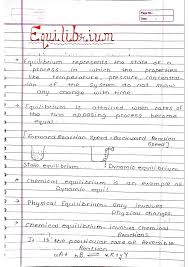 Page No.
Date
Equilibrium
→ Equilibrium represents the state of a
process in which the properties
like temperature, pressure, concentration
of the system do not show
any change with time
→ Equilibrium is attained when rates of
the two opposing process become
equal
[Forward Reaction Speed = Backward Reaction
Speed]
Static equilibrium
Dynamic equilibrium
→ Chemical equilibrium is an example of
Dynamic equil
→ Physical Equilibrium - Only involves
Physical changes.
→ Chemical equilibrium - involves Chemical
Reactions.
It is the particular case of Reversible
Reaction